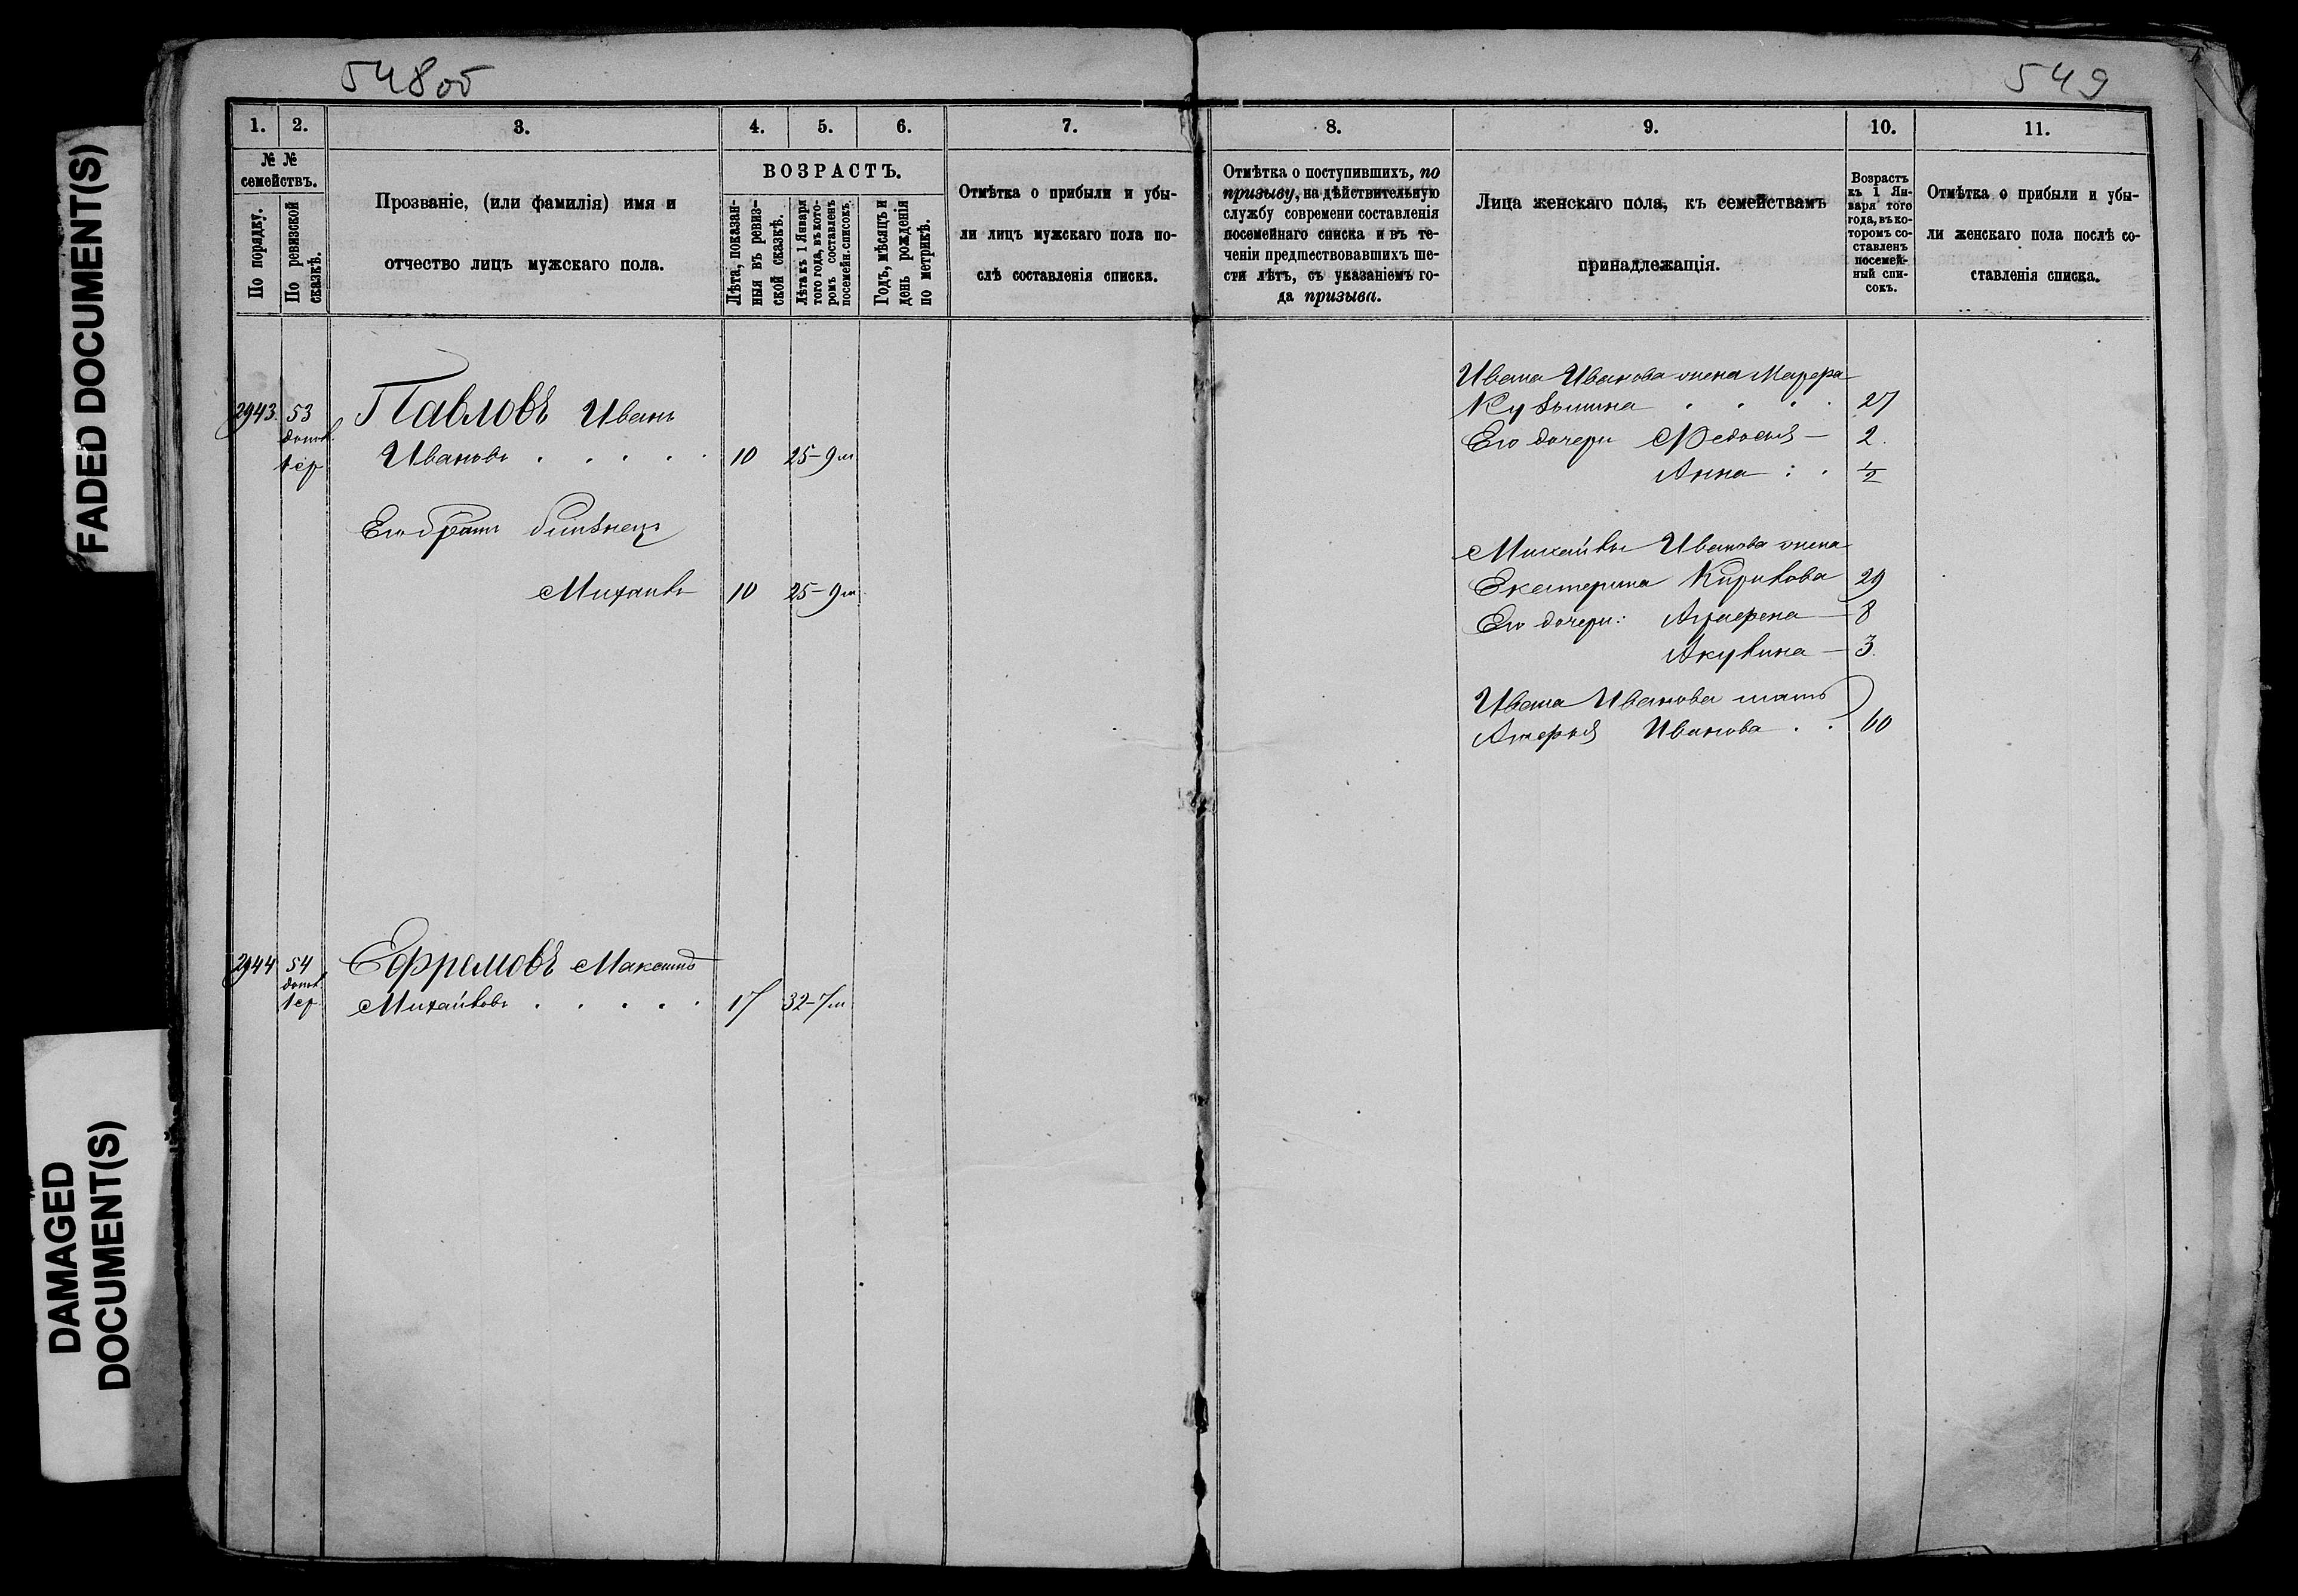 548об
549
FADED DOCUMENT(S)
DAMAGED
DOCUMENT(S)
1. 2. 3. 4. 5. 6. 7. 8. 9. 10. 11.
№ №
семействъ.
По порядку.
По ревизской
сказкѣ.
Прозваніе, (или фамилія) имя и
отчество лицъ мужскаго пола.
ВОЗРАСТЪ.
Лѣта, показан-
ныя въ ревиз-
ской сказкѣ.
Лѣта къ 1 Января
того года, въ кото-
ромъ составленъ
посемейн. списокъ
Годъ, мѣсяцъ и
день рожденія
по метрикѣ.
Отмѣтка о прибыли и убы-
ли лицъ мужскаго пола по-
слѣ составленія списка.
Отмѣтка о поступившихъ, по
призыву, на дѣйствительную
службу современи составленія
посемейнаго списка и въ те-
ченіи предшествовавшихъ ше-
сти лѣтъ, съ указаніемъ го-
да призыва.
Лица женскаго пола, къ семействамъ
принадлежащія.
Возрастъ
къ 1 Ян-
варя того
года, въ ко-
торомъ со-
ставленъ
посемей-
ный спи-
сокъ.
Отмѣтка о прибыли и убы-
ли женскаго пола послѣ со-
ставленія списка.
2943. 53 Павловъ Иванъ
допол.
1 ср Ивановъ . . . . . 10 25-9м
Его братъ близнецъ
Михаилъ 10 25-9м
Ивана Иванова жена Марфа
Кузьмина . . . . 27
Его дочери Федосья — 2.
Анна : . 1/2
Михайлы Иванова жена
Екатерина Кирилова 29
Его дочери: Аграфена — 8
Акулина — 3.
Ивана Иванова мать
Иванова . . 60
2944 54 Ефремовъ Максимъ
допол.
1 ср. Михайловъ . . . . . 17 32-7м